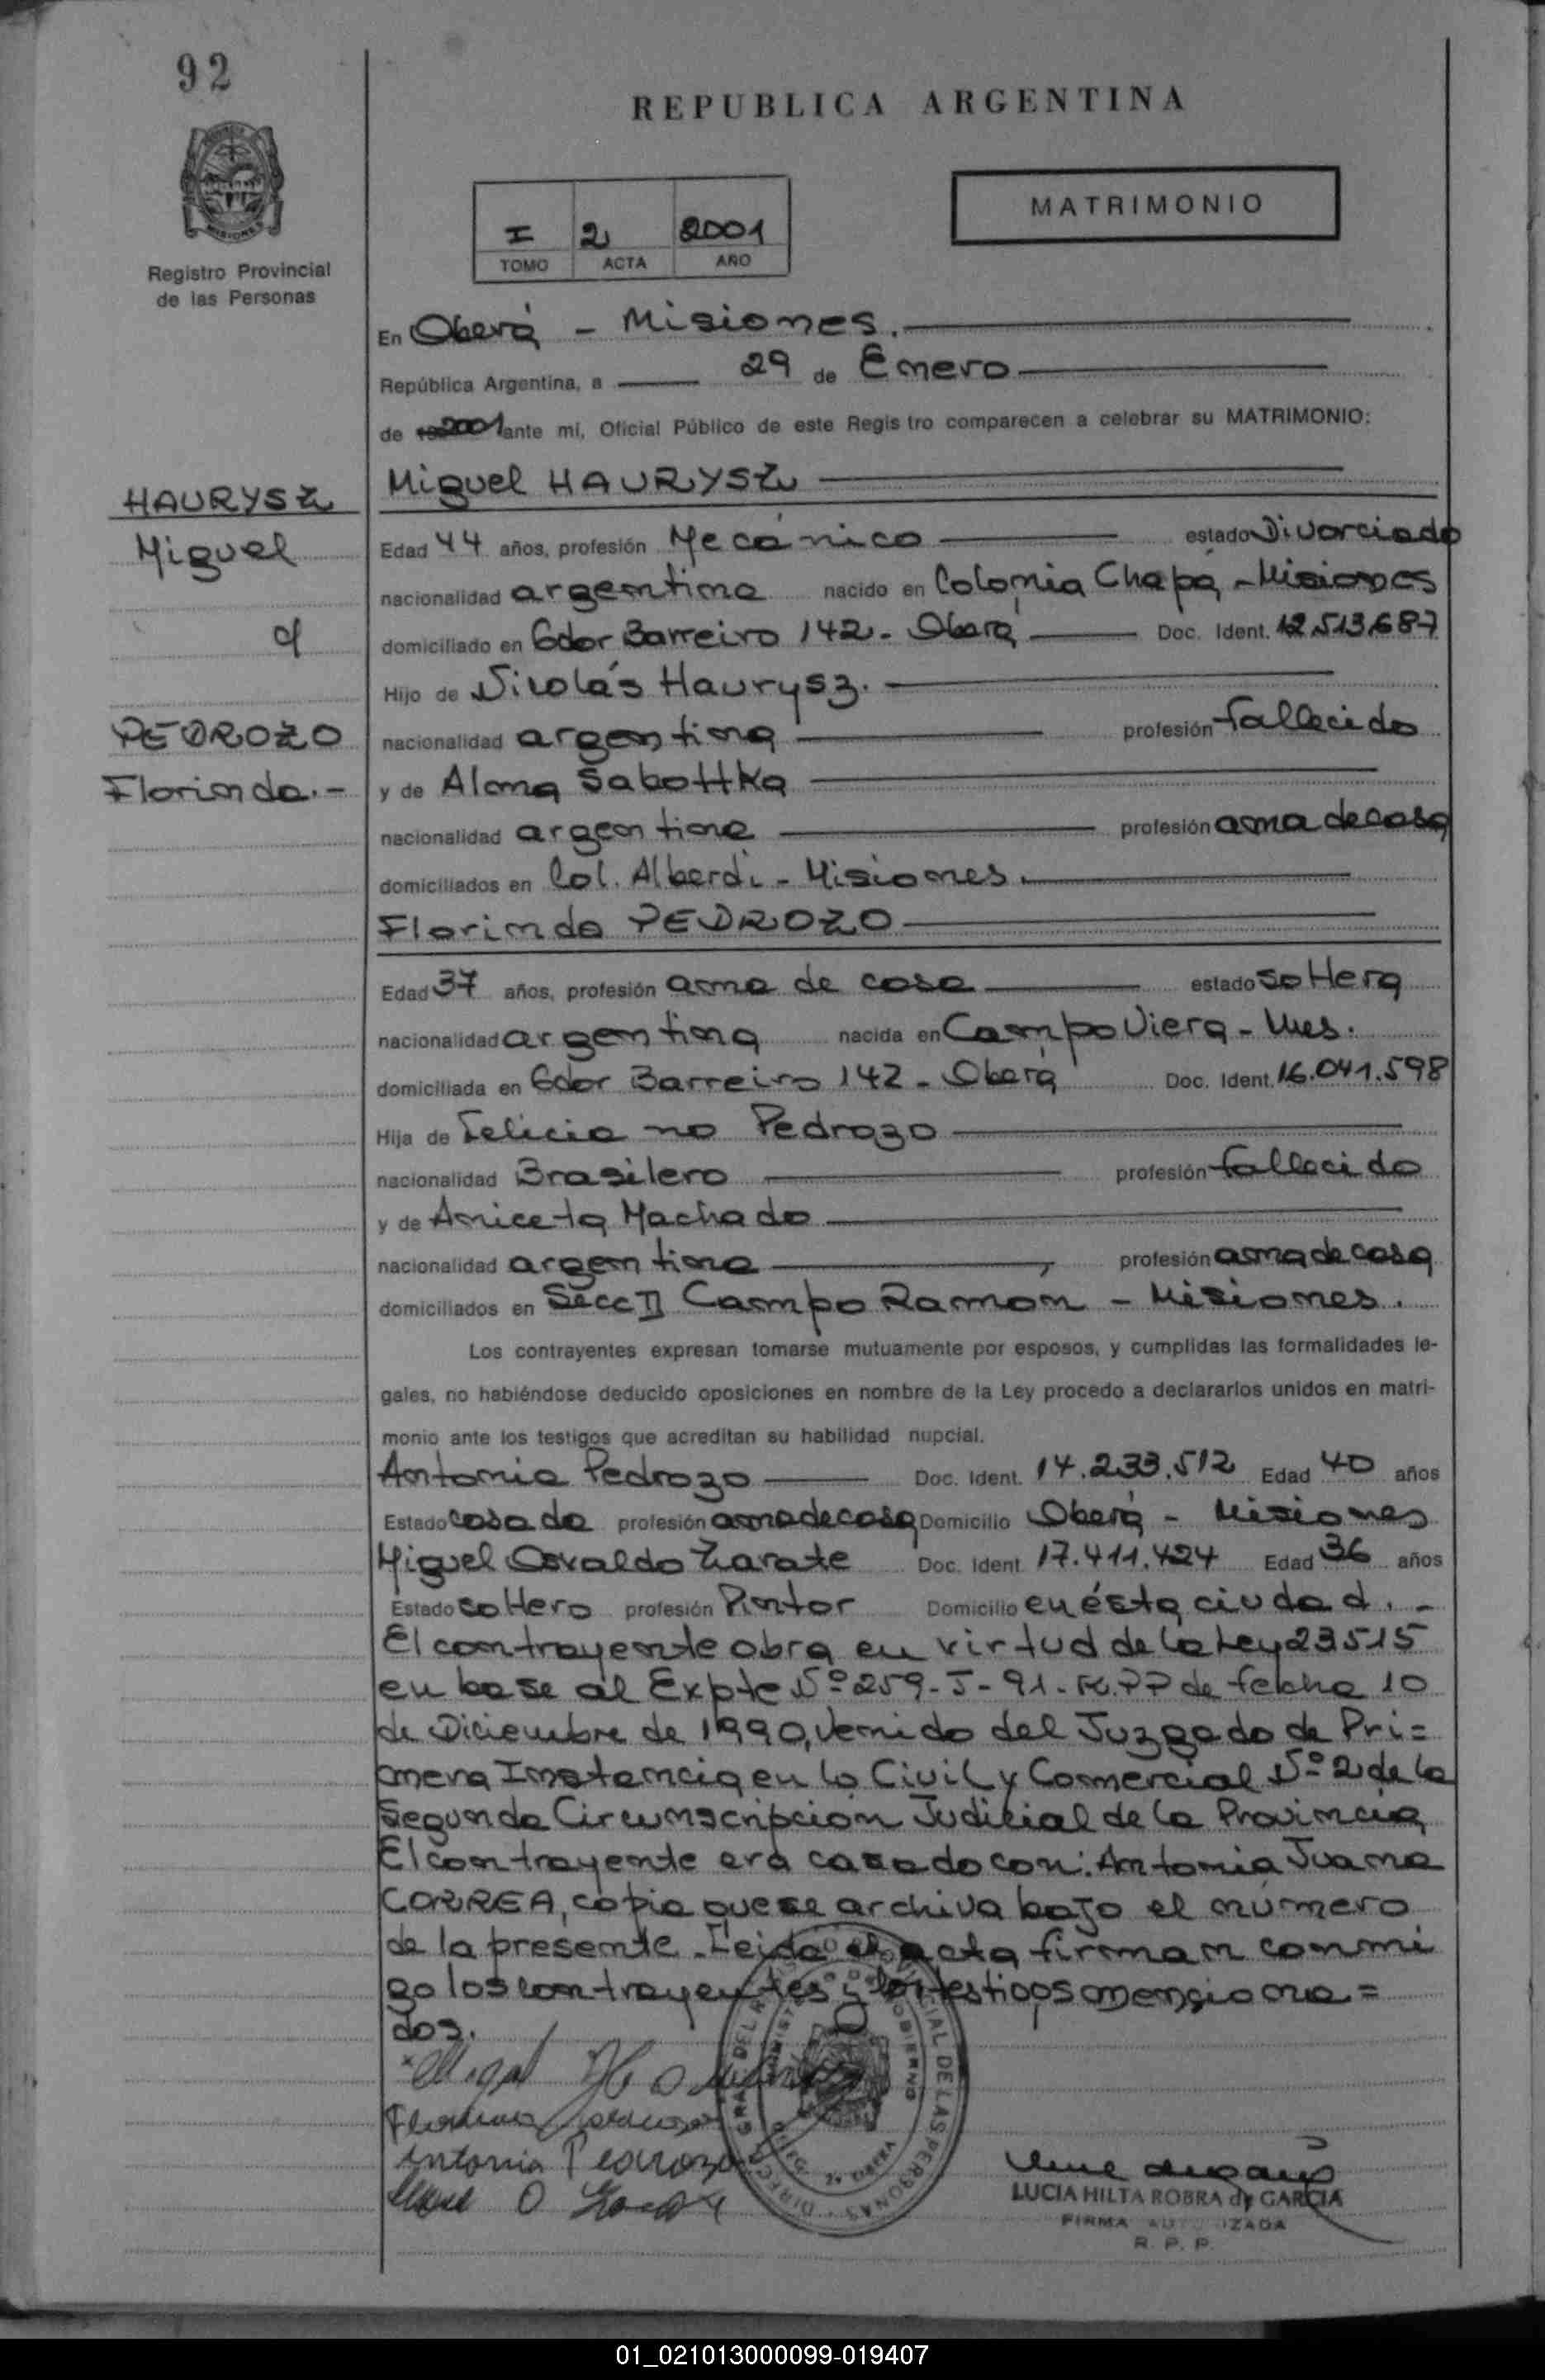 92
REPUBLICA ARGENTINA
MATRIMONIO
I 2 2001
TOMO ACTA AÑO
MISIONES
Registro Provincial
de las Personas
En Oberá - Misiones.
República Argentina, a 29 de Enero
de 2001 ante mí, Oficial Público de este Regis tro comparecen a celebrar su MATRIMONIO:
Miguel HAURYSZ
HAURYSZ
Miguel
c/
PEDROZO
Florinda.-
Edad 44 años, profesión Mecánico estado Divorciado
nacionalidad argentina nacido en Colonia Chapá - Misiones
domiciliado en Gdor Barreiro 142 - Oberá Doc. Ident. 12.513.687
Hijo de Nicolás Haurysz.
nacionalidad argentina profesión fallecido
y de Alma Sabottka
nacionalidad argentina profesión ama de casa
domiciliados en Col. Alberdi - Misiones.
Florinda PEDROZO
Edad 37 años, profesión ama de casa estado soltera
nacionalidad argentina nacida en Campo Viera - Mnes.
domiciliada en Gdor Barreiro 142 - Oberá Doc. Ident. 16.041.598
Hija de Feliciano Pedrozo
nacionalidad Brasilero profesión fallecido
y de Aniceta Machado
nacionalidad argentina profesión ama de casa
domiciliados en Secc II Campo Ramon - Misiones.
Los contrayentes expresan tomarse mutuamente por esposos, y cumplidas las formalidades le-
gales, no habiéndose deducido oposiciones en nombre de la Ley procedo a declararlos unidos en matri-
monio ante los testigos que acreditan su habilidad nupcial.
Antonia Pedrozo Doc. Ident. 14.233.512 Edad 40 años
Estado casada profesión ama de casa Domicilio Oberá - Misiones
Miguel Osvaldo Zarate Doc. Ident. 17.411.424 Edad 36 años
Estado soltero profesión Pintor Domicilio en ésta ciudad. -
El contrayente obra en virtud de la Ley 23515
en base al Expte Nº 259-J-91- de fecha 10
de Diciembre de 1990, venido del Juzgado de Pri=
mera Instancia en lo Civil y Comercial Nº 2 de la
Segunda Circunscripción Judicial de la Provincia
El contrayente era casado con: Antonia Juana
CORREA, copia que se archiva bajo el número
de la presente. Leida el acta firman conmi
go los contrayentes y los testigos menciona=
dos.
Antonia Pedrozo
LUCIA HILTA ROBRA de GARCIA
FIRMA AUTORIZADA
R. P. P.
01_021013000099-019407